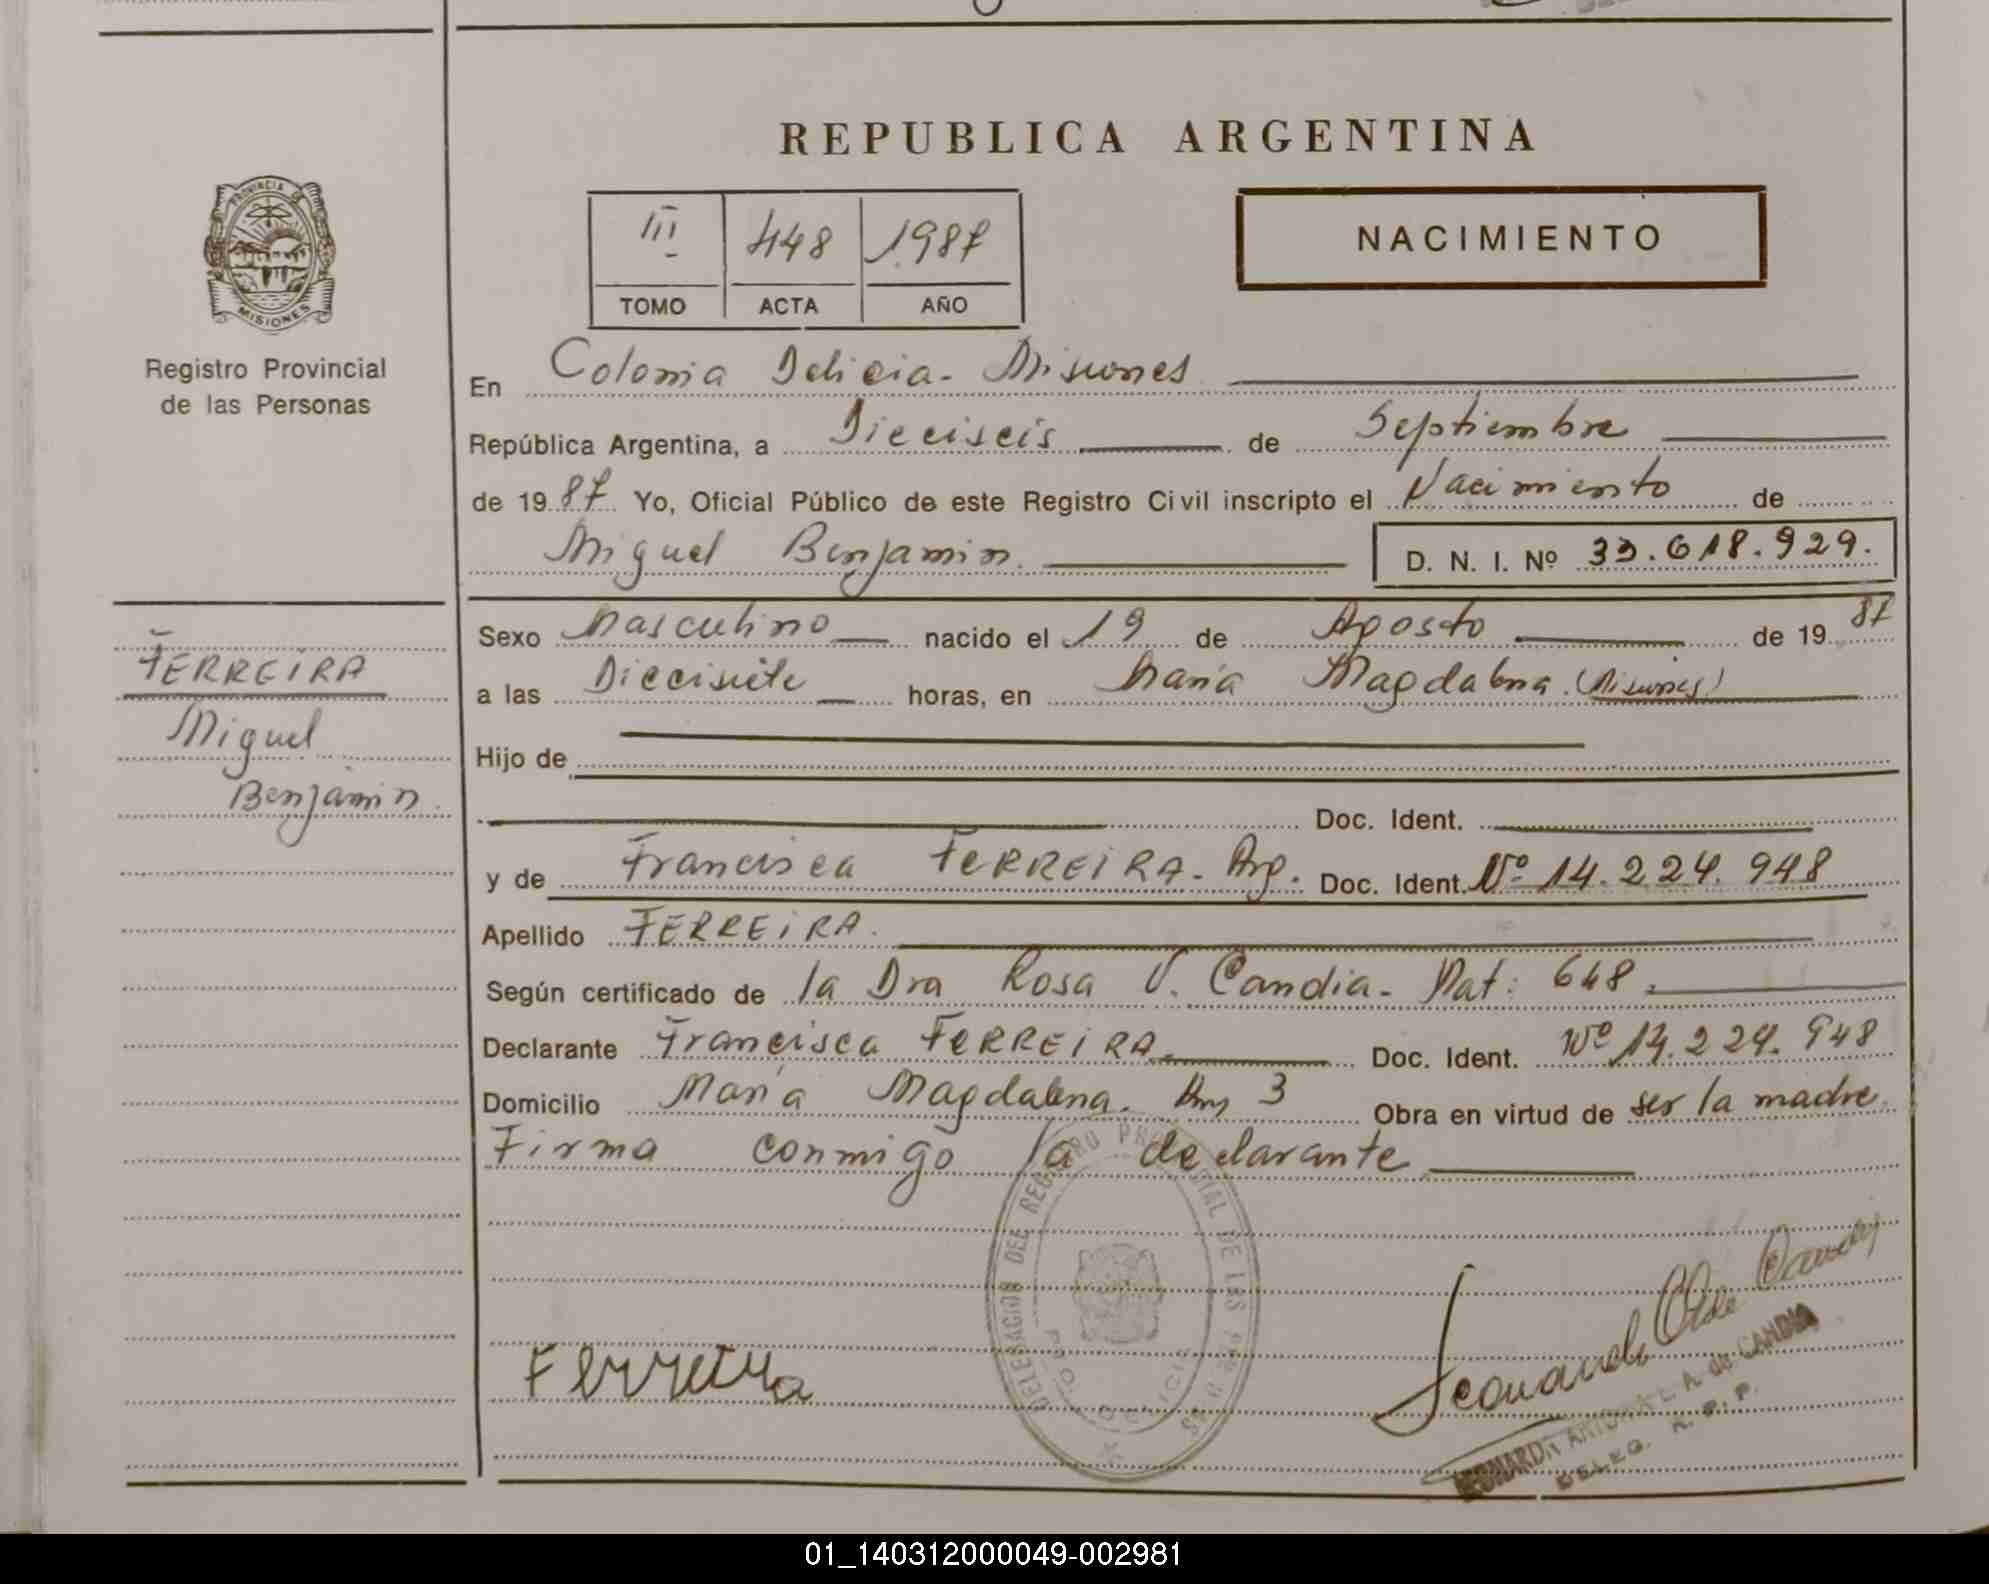 REPUBLICA ARGENTINA
PROVINCIA DE
MISIONES
Registro Provincial
de las Personas
III 448 1987
TOMO ACTA AÑO
NACIMIENTO
En Colonia Delicia - Misiones
República Argentina, a Dieciseis de Septiembre
de 19 87 Yo, Oficial Público de este Registro Civil inscripto el Nacimiento de
Miguel Benjamin. D. N. I. Nº 33.618.929.
Sexo Masculino nacido el 19 de Agosto de 19 87
FERREIRA
a las Diecisiete horas, en María Magdalena. (Misiones)
Miguel
Hijo de
Benjamin.
Doc. Ident.
y de Francisca FERREIRA - Arg. Doc. Ident. Nº 14.224.948
Apellido FERREIRA.
Según certificado de la Dra Rosa V. Candia - Mat: 648.
Declarante Francisca FERREIRA. Doc. Ident. Nº 14.224.948
Domicilio María Magdalena. Km 3 Obra en virtud de ser la madre.
Firma conmigo la declarante
DELEGACION DEL REGISTRO PROVINCIAL DE LAS
DELICIA
Ferreira
A. de CANDIA
DELEG. R. P. P.
01_140312000049-002981